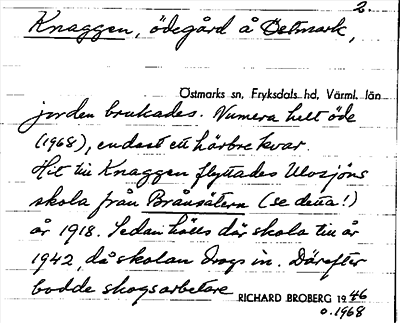 2.
Knaggen, ödegård å Östmark,
Östmarks sn, Fryksdals hd, Värml. län
jorden brukades. Numera helt öde
(1968), endast ett härbre kvar.
Hit till Knaggen flyttades Ulvsjöns
skola från Bränsätern (se detta!)
år 1918. Sedan hölls där skola till år
1942, då skolan drogs in. Därefter
bodde skogsarbetare
RICHARD BROBERG 1946
o. 1968